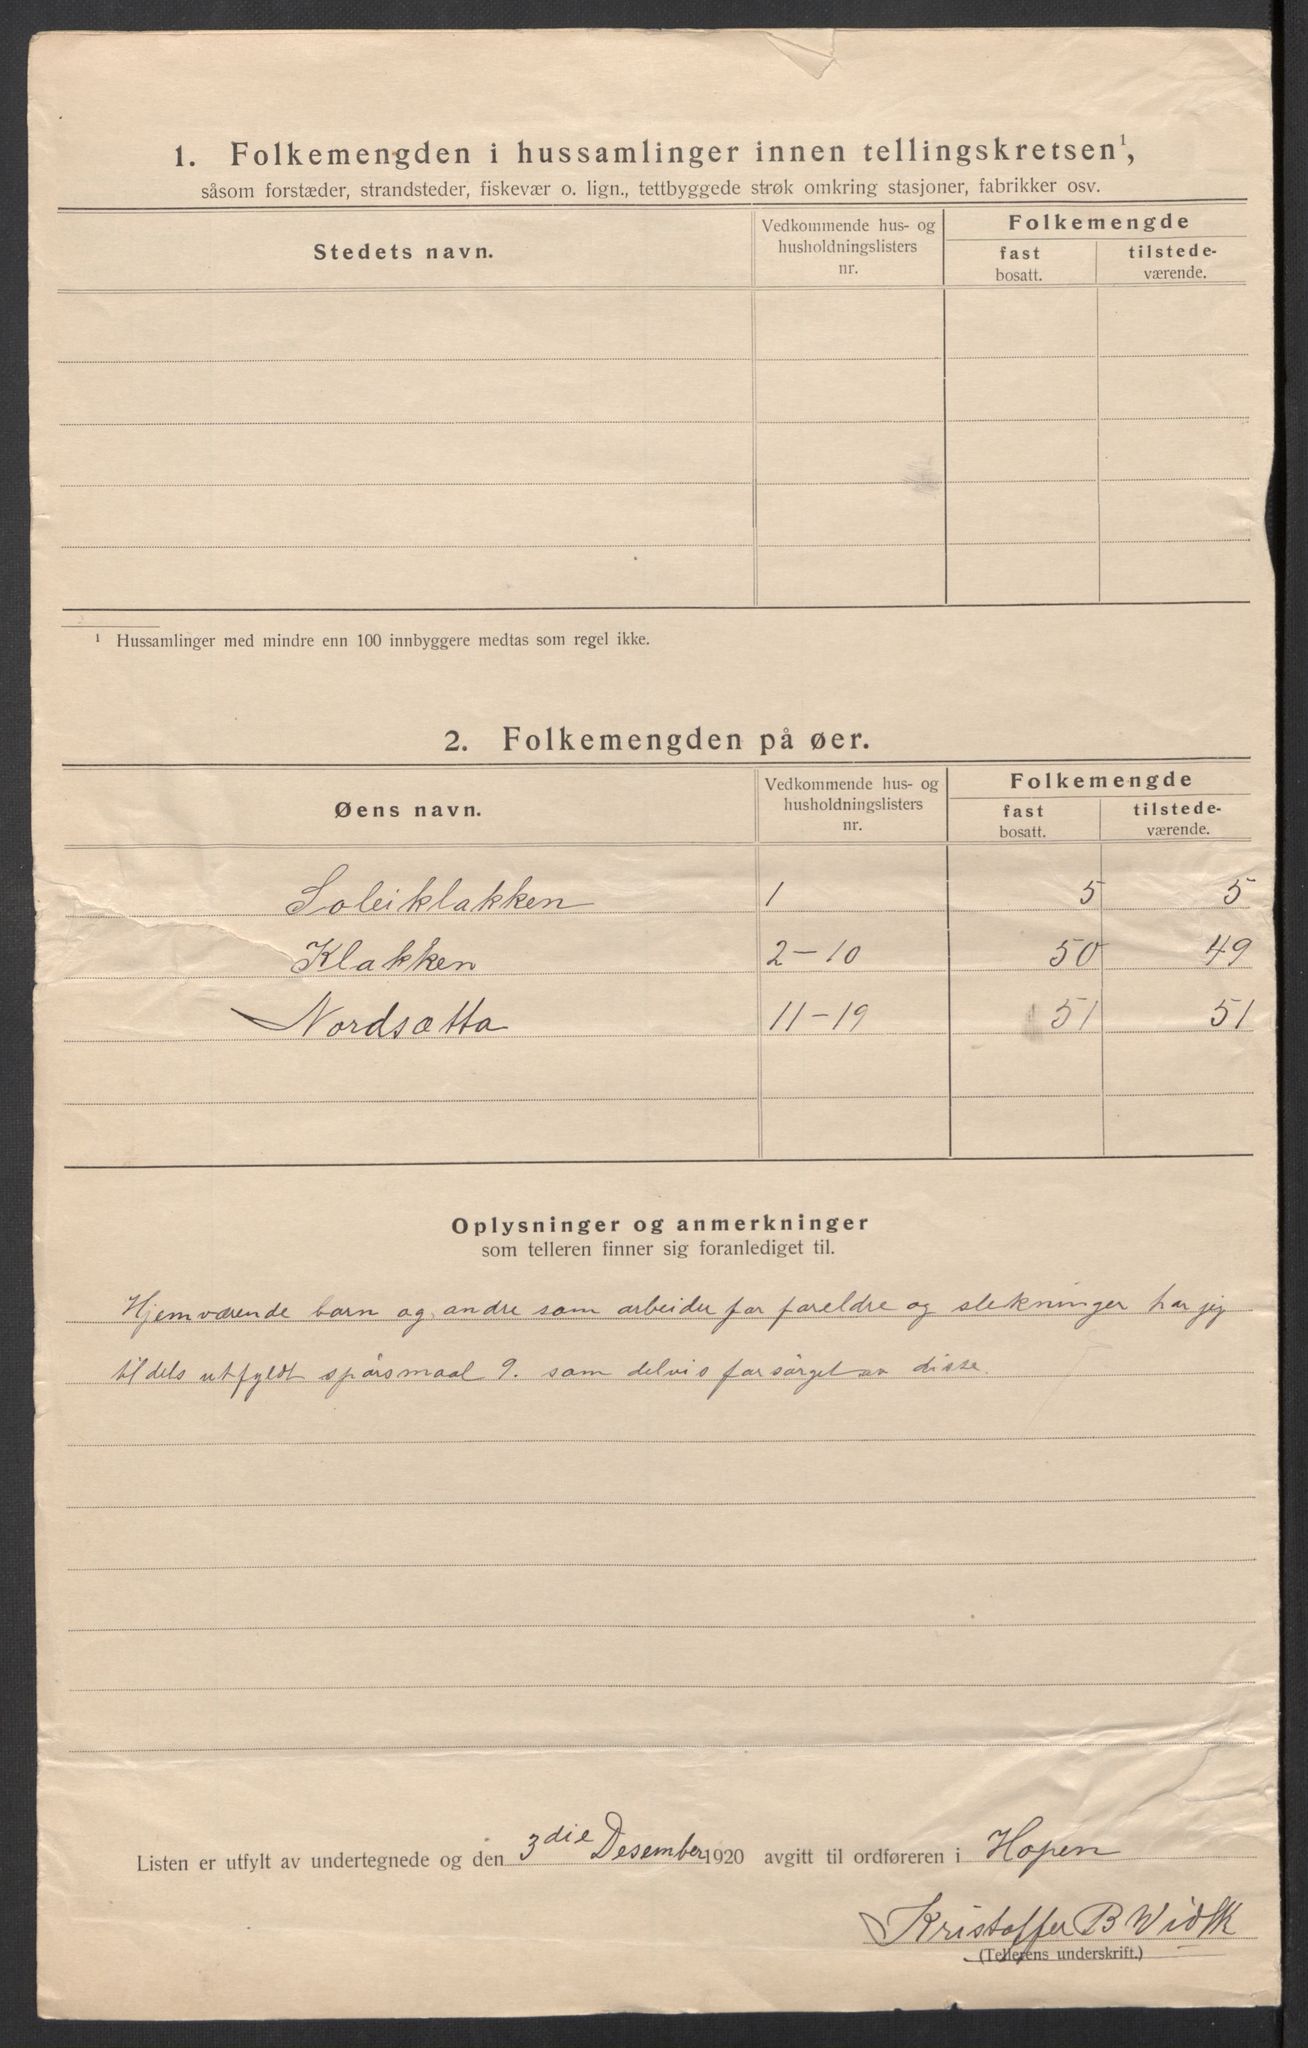 1. Folkemengden i hussamlinger innen tellingskretsen¹,
såsom forstæder, strandsteder, fiskevær o. lign., tettbyggede strøk omkring stasjoner, fabrikker osv.
Stedets navn.
Vedkommende hus- og
husholdningslisters
nr.
Folkemengde
fast
bosatt.
tilstede-
værende.
¹ Hussamlinger med mindre enn 100 innbyggere medtas som regel ikke.
2. Folkemengden på øer.
Øens navn.
Vedkommende hus- og
husholdningslisters
nr.
Folkemengde
fast
bosatt.
tilstede-
værende.
Soleiklakken 1 5 5
Klakken 2-10 50 49
Nordsætta 11-19 51 51
Oplysninger og anmerkninger
som telleren finner sig foranlediget til.
Hjemværende barn og andre som arbeider for foreldre og slekninger har jeg
til dels utfyldt spørsmaal 9. som delvis forsørget av disse.
Listen er utfylt av undertegnede og den 3die Desember 1920 avgitt til ordføreren i Hopen
Kristoffer B
(Tellerens underskrift.)